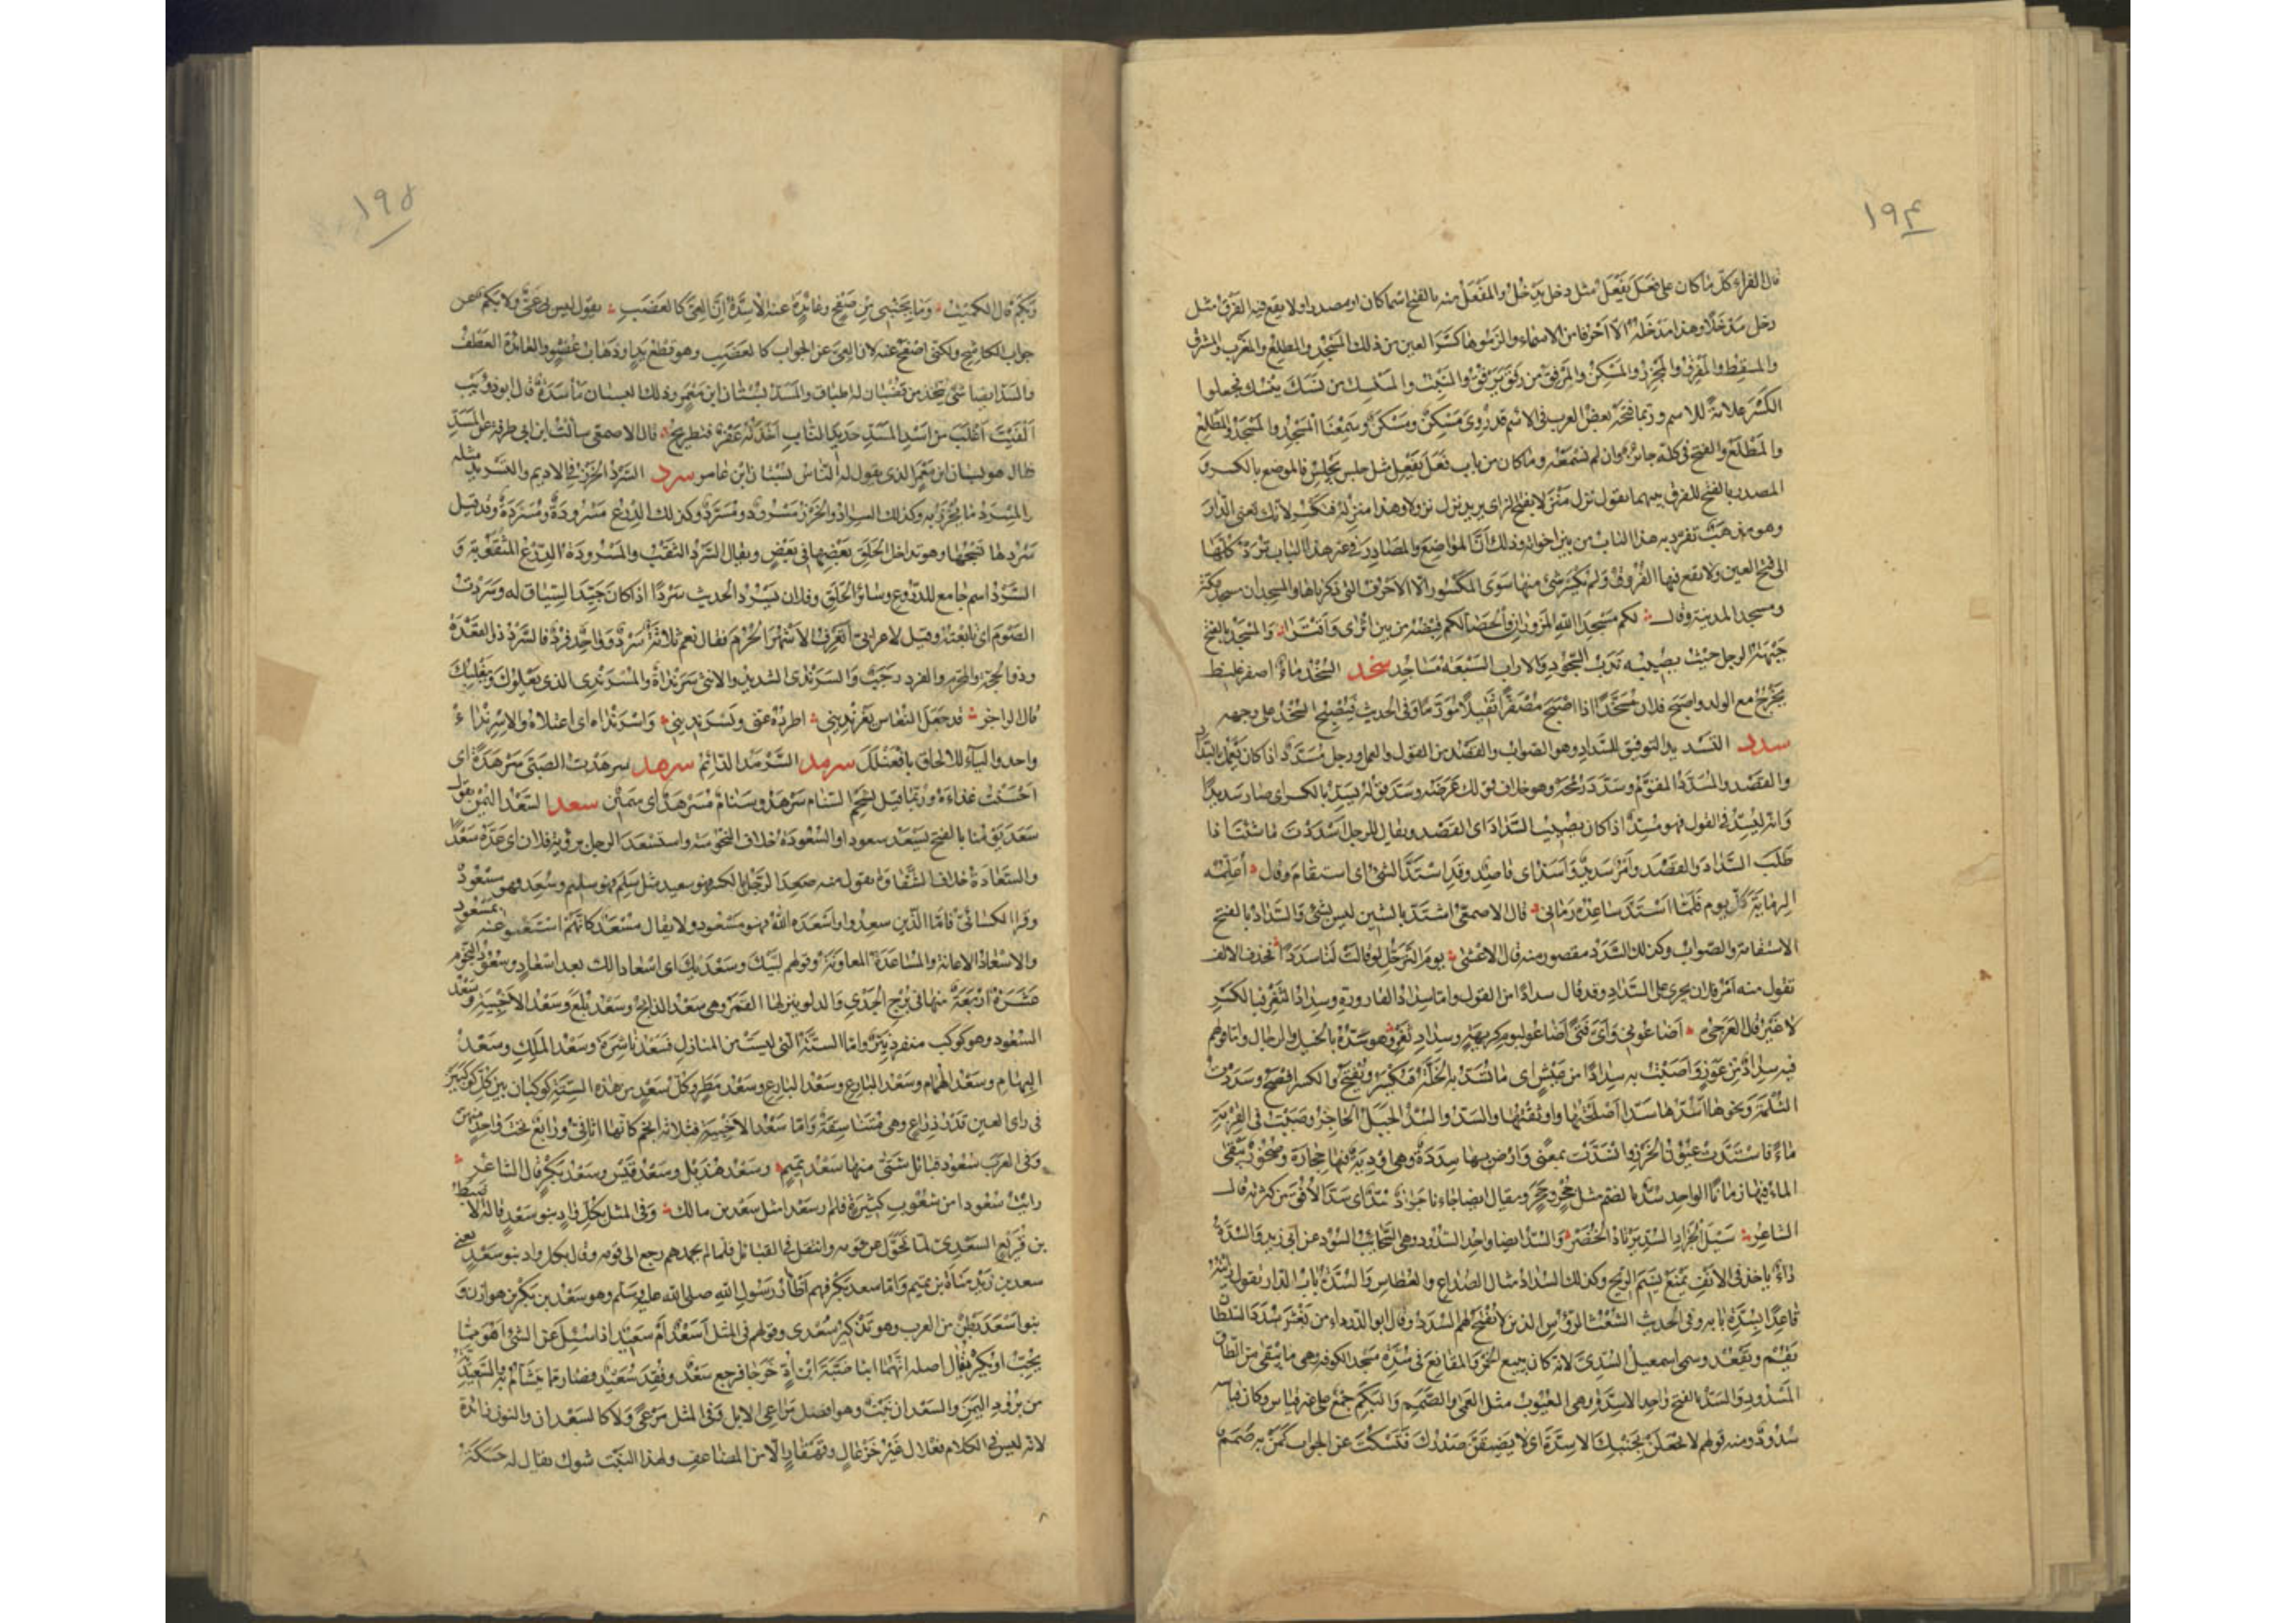 ١٩٤
قال الفراء كل ما كان على فَعَلَ يَفْعُلُ مثل دخل يدخُل والمَفْعَل منه بالفتح اسما كان او مصدرا ولا يقع فيه الفرق مثل
دخل مَدْخَلًا وهذا مَدْخَلُهُ الّا احرفا من الاسماء والزموها كسر العين من ذلك المَسْجِد والمطلِع والمغرِب والمشرِق
والمسقِط والمَفْرِق والمَجْزِر والمَسْكِن والمَرْفِق من رفق يرفُق والمَنْبِت والمنسِك من نسك ينسك فجعلوا
الكسر علامةً للاسم وربما فتحه بعض العرب في الاسم قد رُوِيَ مَسْكِنٌ ومَسْكَنٌ وسمعنا المَسْجِد والمَسْجَد والمَطْلِع
والمَطْلَع والفتح في كلّه جائز وان لم نسمعه وما كان من باب فَعَلَ يَفْعِل مثل جلس يجلِس فالموضع بالكسر و
المصدر بالفتح للفرق بينهما تقول نزل مَنْزَلا بفتح الزاى يريد نزل نزولا وهذا منزِله فتكسر لانك تعنى الدار
وهو مذهبٌ تفرد به هذا الباب من بين اخواته وذلك انّ المواضع والمصادر في غير هذا الباب تُرَدّ كلها
الى فتح العين ولا تقع فيها الفروق ولم يُكسَر شئ منها سوى المكسور الّا الاحرف التي ذكرناها والمسجدان مسجد مكة
ومسجد المدينة وقال لكم مسجدا اللهِ المَزُوران والحَصَا لكم قِبْصُهُ من بين اَثْرَى وَاَقْتَرَا والمسجَد بالفتح
جبهة الرجل حيث يصيبه ندب السجود والاراب السبعة مساجد سخد السُّخْد ماءٌ اصفر غليظ
يخرج مع الولد واصبح فلان مُسَخَّدًا اذا اصبح مصفرًّا ثقيلا مورّما وفي الحديث فيصبح السُّخْد على وجهه
سدد التسديد التوفيق للسداد وهو الصواب والقصد من القول والعمل ورجل مُسَدَّدٌ اذا كان يعمل بالسَّداد
والقصد والمُسَدَّد المقوّم وسدَّد رُمْحَه وهو خلاف قولك عرّضه وسدّ قولُه يسِدّ بالكسر اى صار سديدًا
وانه ليُسِدّ في القول فهو مُسِدٌّ اذا كان يصيب السَّداد اى القصد ويقال للرجل اسددت ما شئت اذا
طلب السَّداد والقصد وامْرٌ سَديدٌ وَاَسَدُّ اى قاصِد وقد استدّ الشئ اى استقام وقال اُعلِّمُه
الرِّمايَةَ كلّ يوم فلمّا استدّ ساعِدُه رمانى قال الاصمعى اشتدّ بالشين ليس بشئ والسَّداد بالفتح
الاستقامة والصواب وكذلك السَّدَد مقصور منه قال الاعشى يومَ التَّرَحُّلِ لو قالت لنا سَدَدَا فحذف الالف
تقول منه اَمْرُ فلان يجرى على السَّداد وقد قال سدادًا من القول وامّا سِداد القارورة وسِداد الثَّغْر فبالكسر
لا غير قال العَرْجىّ اضاعونى وَاَىَّ فَتًى اضاعوا ليوم كريهة وسِدادِ ثَغْرِ وهو سَدُّه بالخيل والرجال وامّا قولهم
فيه سدادٌ من عوَزٍ وَاَصَبْتُ به سِدادًا من عَيْشٍ اى ما تُسَدُّ به الخَلَّة فيُكسَر ويُفتَح والكسر افصح وسددت
الثُّلْمَة ونحوها اسُدُّها سَدًّا اصلحتُها واوثقتُها والسَّدّ والسُّدّ الجبل الحاجز وصببت في القِرْبة
ماءً فاستدّت عيون الخُرَز وانسدّت بمعنًى وارْض بها سِدَدَةٌ وهى اودية فيها حجارة وصخور يبقى
الماء فيها زمانًا الواحد سُدّ بالضم مثل جُحْر وجِحَرَة ويقال ايضا جاءنا جرادٌ سُدٌّ اى سدّ الاُفُق من كثرته قال
الشاعر سَيْلُ الجَرادِ السُّدِّ يَرْتادُ الخُضَر والسُّدّ ايضا واحد السُّدود وهى السحائب السود عن ابى زيد والسُّدّة
داءٌ ياخذ في الانف يمنع نسيم الريح وكذلك السُّداد مثال الصُّداع والعُطاس والسُّدّة باب الدار تقول رايته
قاعدًا بسُدّة بابه وفي الحديث الشُّعْث الرؤس الذين لا تُفتَح لهم السُّدَد وقال ابو الدرداء من يَغْشَ سُدَدَ السلطان
يقم ويقعد وسمى اسمعيل السُّدّىّ لانه كان يبيع الخُمُر والمقانع في سُدّة مسجد الكوفة وهى ما يبقى من الطاق
المسدود والسَّدّ بالفتح واحد الاسِدّة وهى العُيوب مثل العَمَى والصَّمَم والبَكَم جُمع على غير قياس وكان قياسه
سُدُودٌ ومنه قولهم لا تجعلنّ بجنبك الاسِدّة اى لا يضيقنّ صدرك فتسكت عن الجواب كمن به صَمَمٌ
١٩٥
وبَكَم قال الكميت وما بِجَنْبِىَ من صَفْحٍ وعائدةٍ عند الاَسِدَّةِ اِنّ العِىَّ كالعَضَبِ يقول ليس بى عِىٌّ ولا بَكَم عن
جواب الكاشح ولكنى اصفح عنه لان العِىّ عن الجواب كالعَضَب وهو قطع يد او ذهاب عضو والعائدة العطف
والسدّ ايضا شئ يتخذ من قُضْبان له اطباق والمَسَدّ بستان ابن مَعْمَر وذلك البستان مأسَدةٌ قال ابو ذؤيب
اَلْفَيْتَ اَغْلَبَ من اُسْدِ المَسَدِّ حديدَ النابِ اَخْذَتُه عَفْرٌ فتطريحُ قال الاصمعى سألت ابن ابى طرفة عن المَسَدّ
فقال هو بستان ابن مَعْمَر الذى يقول له الناس بستان ابن عامر سرد السَّرْد الخَرْز في الاديم والتسريد مثله
والمِسْرَد ما يُخْرَز به وكذلك السِّراد والخَرْز مسرود ومُسَرَّد وكذلك الدِّرْع مَسْرُودَةٌ ومُسَرَّدَةٌ وقد قيل
سَرْدها نَسْجُها وهو تداخل الحَلَق بعضها في بعض ويقال السَّرْد الثَّقْب والمَسْرودة الدِّرْع المثقوبة و
السَّرْد اسم جامع للدروع وسائر الحَلَق وفلان يَسْرُد الحديث سَرْدًا اذا كان جيّد السياق له وسردت
الصوم اى تابعته وقيل لاعرابىّ أتعرف الاشهر الحُرُم فقال نعم ثلاثةٌ سَرْدٌ وواحِدٌ فَرْدٌ فالسَّرْد ذو القعدة
وذو الحجّة والمحرّم والفرد رَجَبٌ والسَّرَنْدَى الشديد والانثى سَرَنْداةٌ والمُسْرَنْدِى الذى يعلوك ويغلبك
قال الراجز قد جعَل النُّعاسُ يَغْرَنْدِينى اطردُه عنّى ويَسْرَنْدينى واسرنداه اى اعتلاه والاسرنداء
واحد والياء للالحاق بافْعَنْلَلَ سرمد السَّرْمَد الدائم سرهد سَرْهَدْتُ الصبىّ سَرْهَدَةً اى
احسنت غذاءه وربما قيل لشحم السنام سَرْهَد وسنامٌ مُسَرْهَدٌ اى سمين سعد السَّعْد اليُمْن تقول
سَعَدَ يومُنا بالفتح يَسْعَد سعودا والسُّعُودَة خلاف النحوسة واستسعد الرجل برؤية فلان اى عَدَّهُ سَعْدًا
والسعادة خلاف الشقاوة تقول منه سَعِدَ الرجل بالكسر فهو سعيد مثل سَلِمَ فهو سليم وسُعِد فهو مسعودٌ
وقرا الكسائى فامّا الذين سعدوا واسعده الله فهو مسعود ولا يقال مُسْعَدٌ كانّهم استغنوا عنه بمسعود
والاسعاد الاعانة والمساعدة المعاونة وقولهم لبّيك وسعديك اى اسعادا لك بعد اسعاد وسُعُود النجوم
عَشَرَةٌ اربعةٌ منها في برج الجَدْى والدلو ينزلها القمر وهى سَعْد الذابح وسَعْد بُلَعَ وسَعْد الاَخْبِيَة وسعد
السُّعود وهو كوكب منفرد نيّرٌ وامّا الستّة التى ليست من المنازل فسعد ناشِرَة وسَعْد المَلِك وسَعْد
البِهام وسعد الهُمام وسَعْد البارِع وسعد البارع وسَعْد مَطَر وكلّ سَعْدٍ من هذه الستّة كوكبان بين كل كوكبين
في راى العين قدر ذراع وهى متناسقة وامّا سَعْد الاخبية فثلاثة انجم كانّها اثافىّ ورابع تحت واحد منهنّ
وفي العرب سعود قبائل شتّى منها سَعْد تميم وسَعْد هُذَيل وسَعْد قيس وسَعْد بكر قال الشاعر
رايت سُعودا من شُعوبٍ كثيرةٍ فلم ار سَعْدا مثل سَعْد بن مالك وفي المثل بكل وادٍ بنو سعدٍ قاله الاضبط
بن قُرَيع السعدىّ لمّا تحوّل عن قومه وانتقل في القبائل فلما لم يحمدهم رجع الى قومه وقال بكل واد بنو سعدٍ يعنى
سعد بن زيد مناة بن تميم وامّا سعد بكر فهم اَظْآر رسول الله صلى الله عليه وسلم وهو سعد بن بكر بن هوازن و
بنو اسعد بطن من العرب وهو تذكير سُعْدى وقولهم في المثل اَسَعْدٌ ام سُعَيْدٌ اذا سُئل عن الشئ اهو ممّا
يُحَبّ او يُكْرَه يقال اصله انّهما ابنا ضَبّة ابن اُدٍّ خرجا فرجع سعد وفُقِد سُعَيد فصار ممّا يُتشاءم به والسعيديّة
من برود اليمن والسعدان نبت وهو افضل مراعى الابل وفي المثل مَرْعًى ولا كالسعدان والنون زائدة
لانه ليس في الكلام فَعْلال غير خَزْعال وقَهْقار الّا من المضاعف ولهذا النبت شوك يقال له حَسَكَة